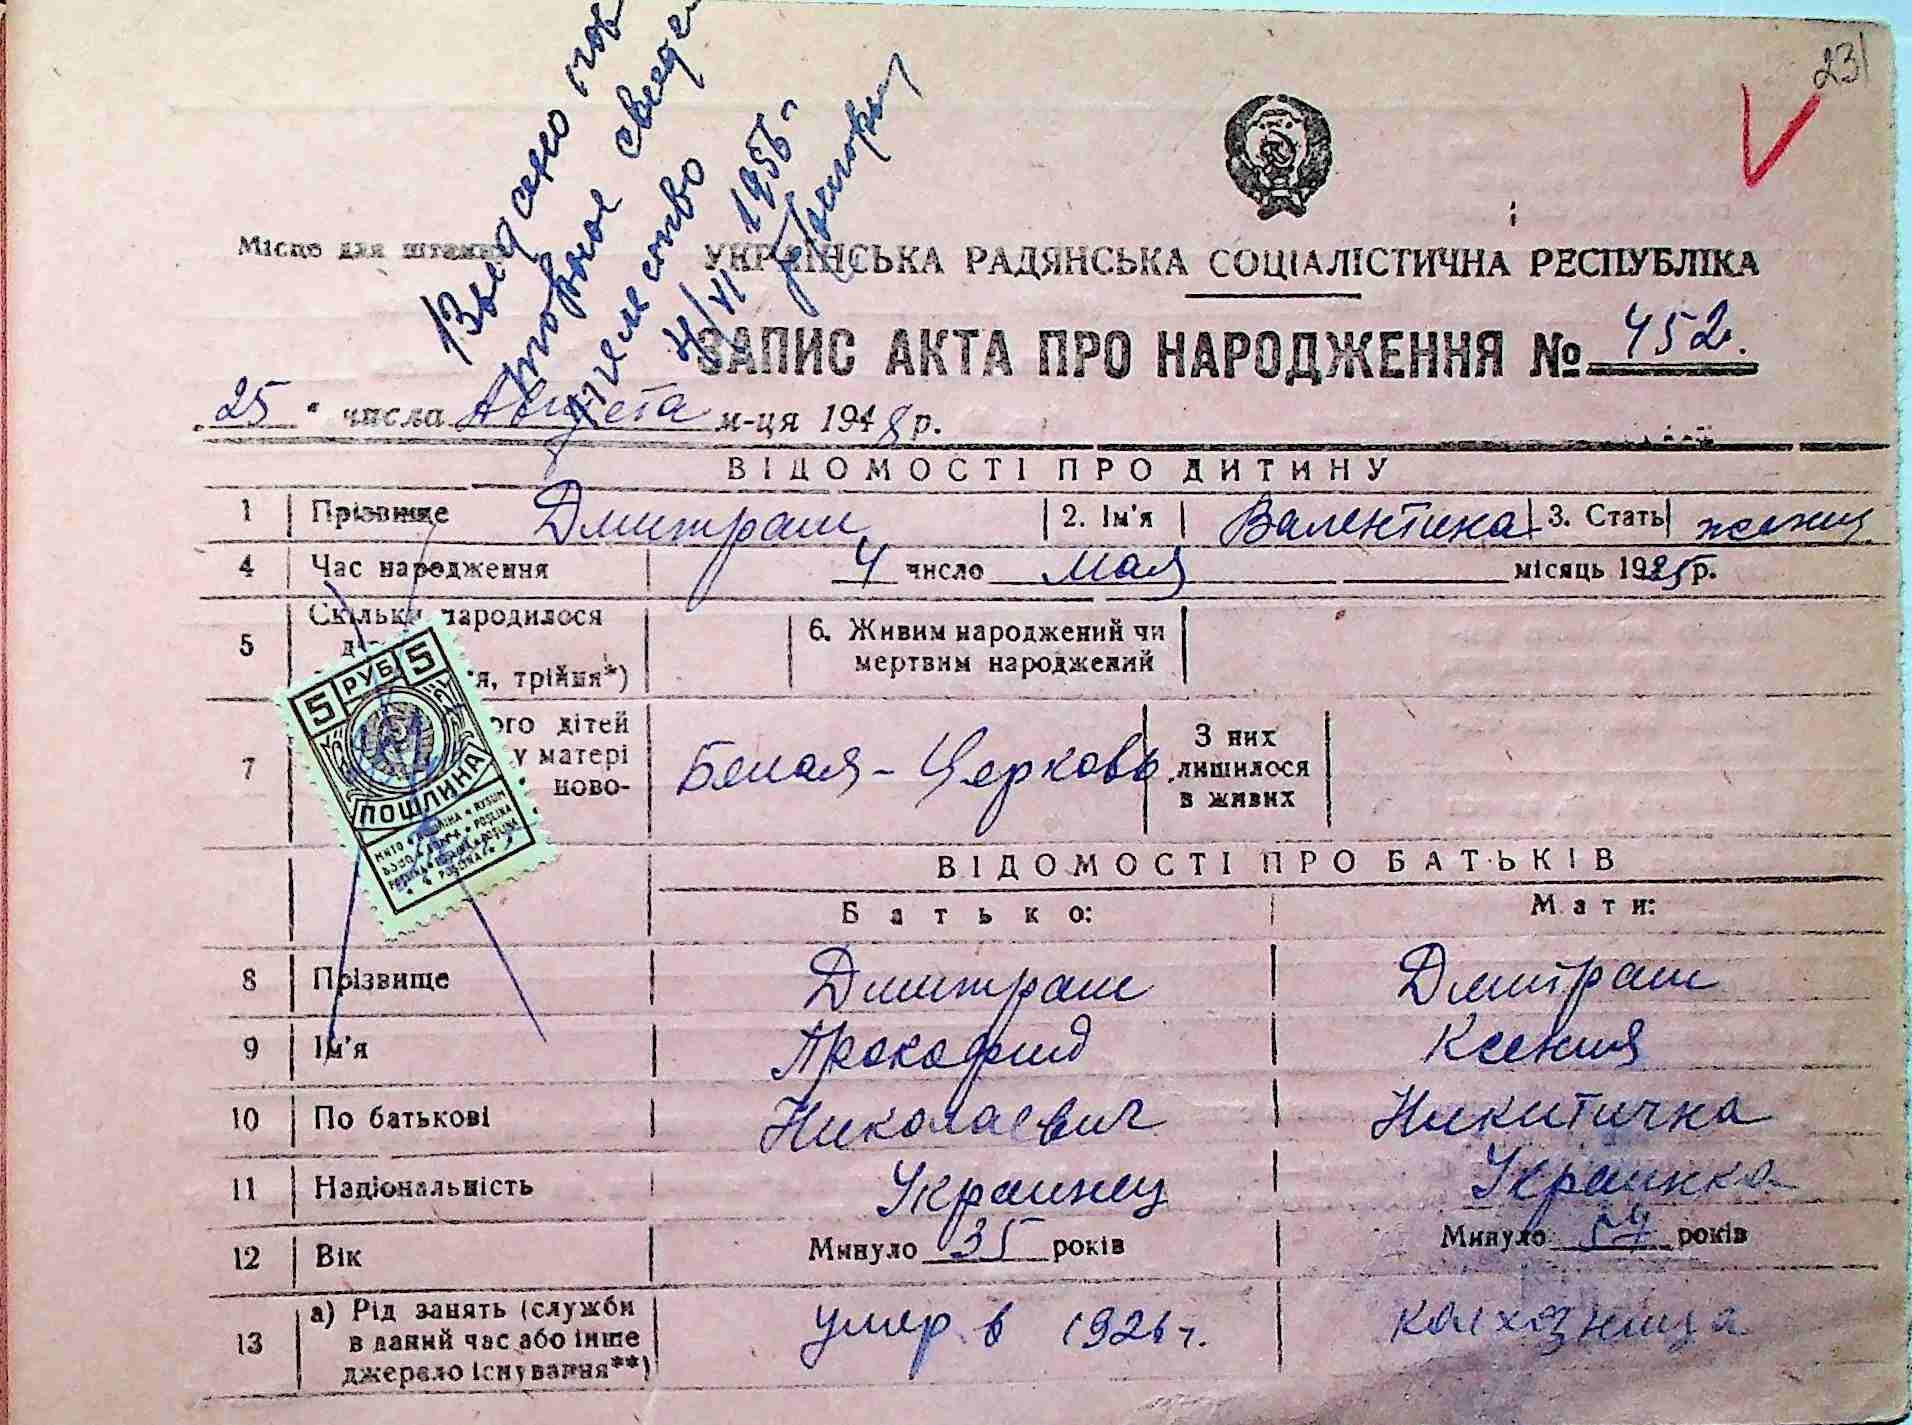 231
Выдано пов
торное свиде
тельство
4/VI 1956 г
Місце для штампа
УКРАЇНСЬКА РАДЯНСЬКА СОЦІАЛІСТИЧНА РЕСПУБЛІКА
ЗАПИС АКТА ПРО НАРОДЖЕННЯ № 452.
25 " числа Августа м-ця 1948 р.
ВІДОМОСТІ ПРО ДИТИНУ
1 Прізвище Дмитраш 2. Ім'я Валентина 3. Стать женщ
4 Час народження 4 число мая місяць 1925р.
5 Скільки народилося 6. Живим народжений чи
мертвим народжений
я, трійня*)
7 ого дітей
у матері
ново-
Белая-Церковь З них
лишилося
в живих
5 РУБ 5
ПОШЛИНА
ВІДОМОСТІ ПРО БАТЬКІВ
Батько: Мати:
8 Прізвище Дмитраш Дмитраш
9 Ім'я Прокофий Ксения
10 По батькові Николаевич Никитична
11 Національність Украинец Украинка
12 Вік Минуло 35 років Минуло 54 років
13 а) Рід занять (служби
в даний час або інше
джерело існування**)
умер в 1926 г. колхозница